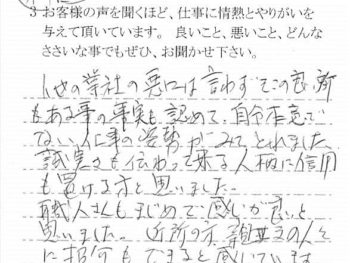 3 お客様の声を聞くほど、仕事に情熱とやりがいを
与えて頂いています。 良いこと、悪いこと、どんな
ささいな事でもぜひ、お聞かせ下さい。
他の業社の悪口は言わずでこの
もある事の事実も認めて、自分本意で
ない人に事の姿勢がみてとれました。
誠実さも伝わって来る人柄に信用
も置ける方と思いました。
職人さんもまじめで感じが良いと
思いました。 近所の方
に紹介もできると感じています